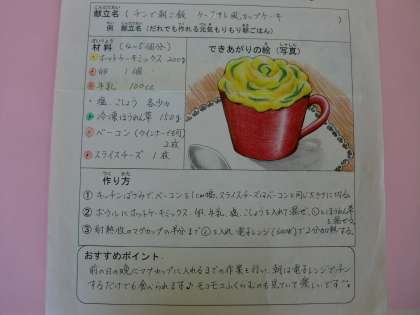 献立名 (チンで朝ご飯 ケークサレ風カップケーキ)
例 献立名 (だれでも作れる元気もりもり朝ごはん)
材料 (4~5個分)
できあがりの絵 (写真)
・ホットケーキミックス 200g
・卵 1個
・牛乳 100cc
・塩、こしょう 各少々
・冷凍ほうれん草 150g
・ベーコン (ウインナーでも可) 2枚
・スライスチーズ 1枚
作り方
① キッチンばさみで、ベーコンを1cm幅、スライスチーズはベーコンと同じ大きさに切る。
② ボウルにホットケーキミックス、卵、牛乳、塩、こしょうを入れて混ぜ、①とほうれん草を混ぜる。
③ 耐熱性のマグカップの半分まで②を入れ、電子レンジ(600W)で2分加熱する。
おすすめポイント
前の日の晩にマグカップに入れるまでの作業を行い、朝は電子レンジでチン
するだけでも食べられます♪モコモコふくらむのも見ていて楽しいです。